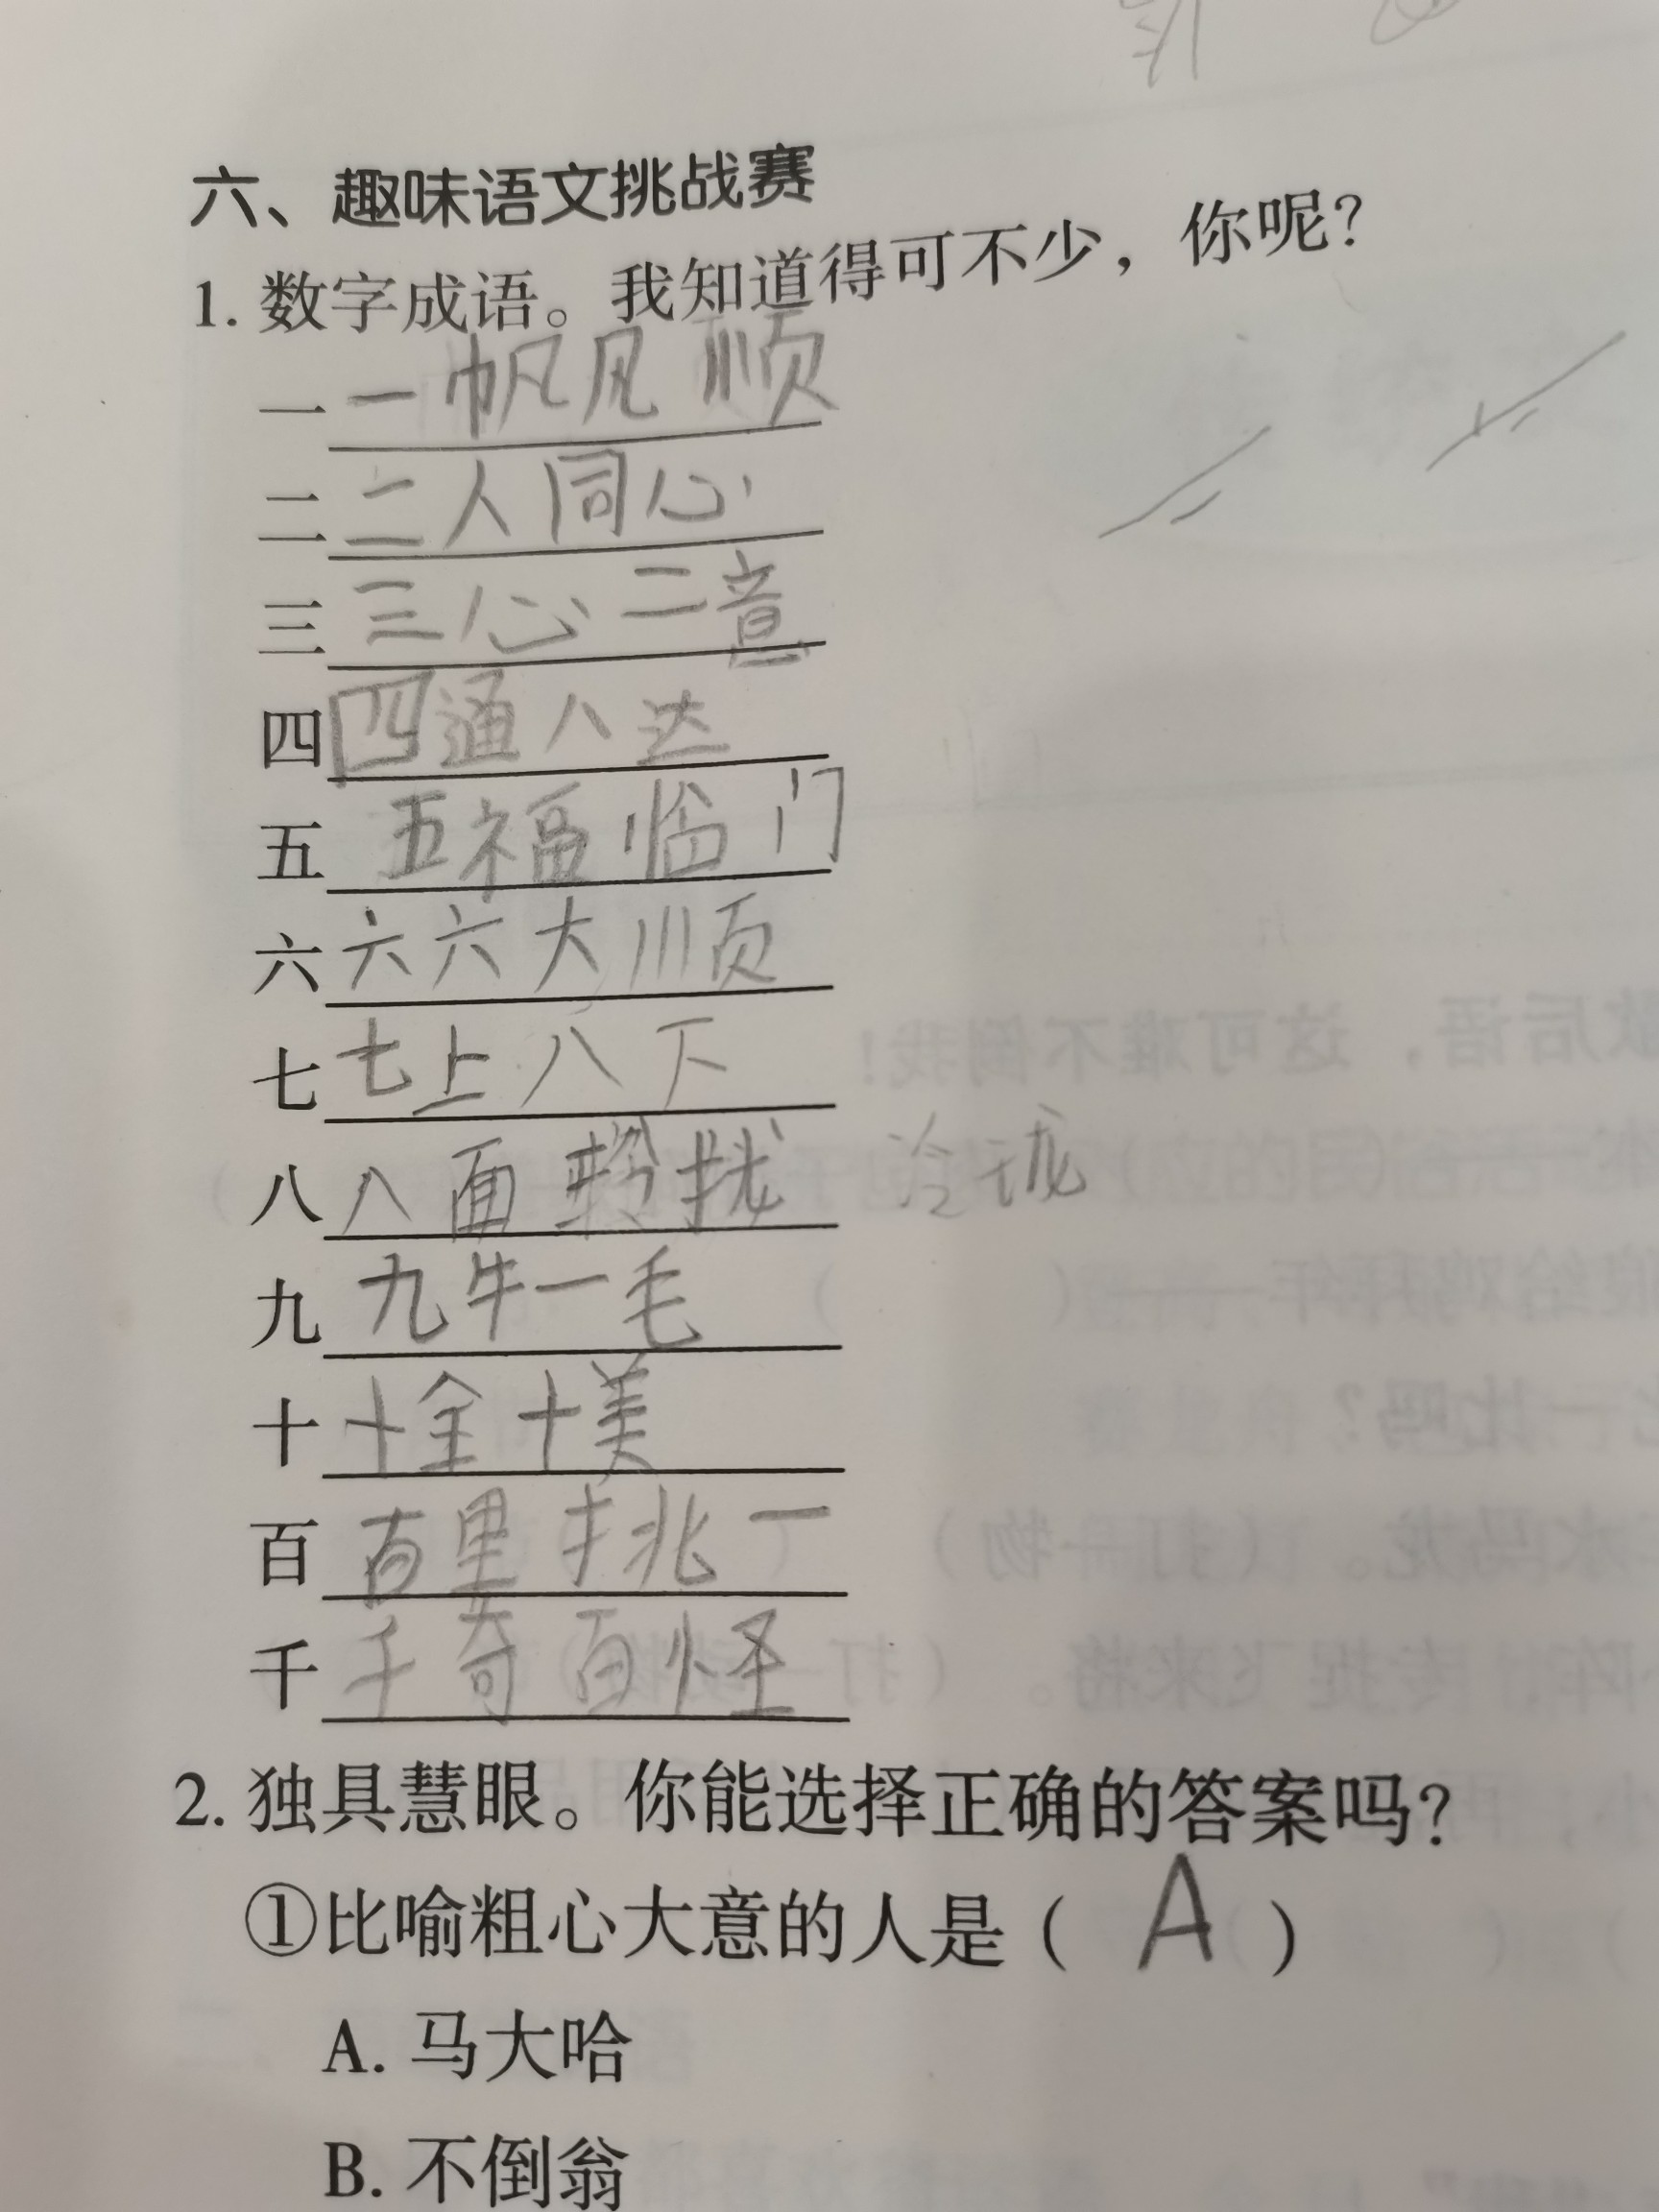 六、趣味语文挑战赛
1. 数字成语。我知道得可不少，你呢？
一 一帆风顺
二 二人同心
三 三心二意
四 四通八达
五 五福临门
六 六六大顺
七 七上八下
八 八面
九 九牛一毛
十 十全十美
百 百里挑一
千 千奇百怪
2. 独具慧眼。你能选择正确的答案吗？
①比喻粗心大意的人是（ A ）
A. 马大哈
B. 不倒翁